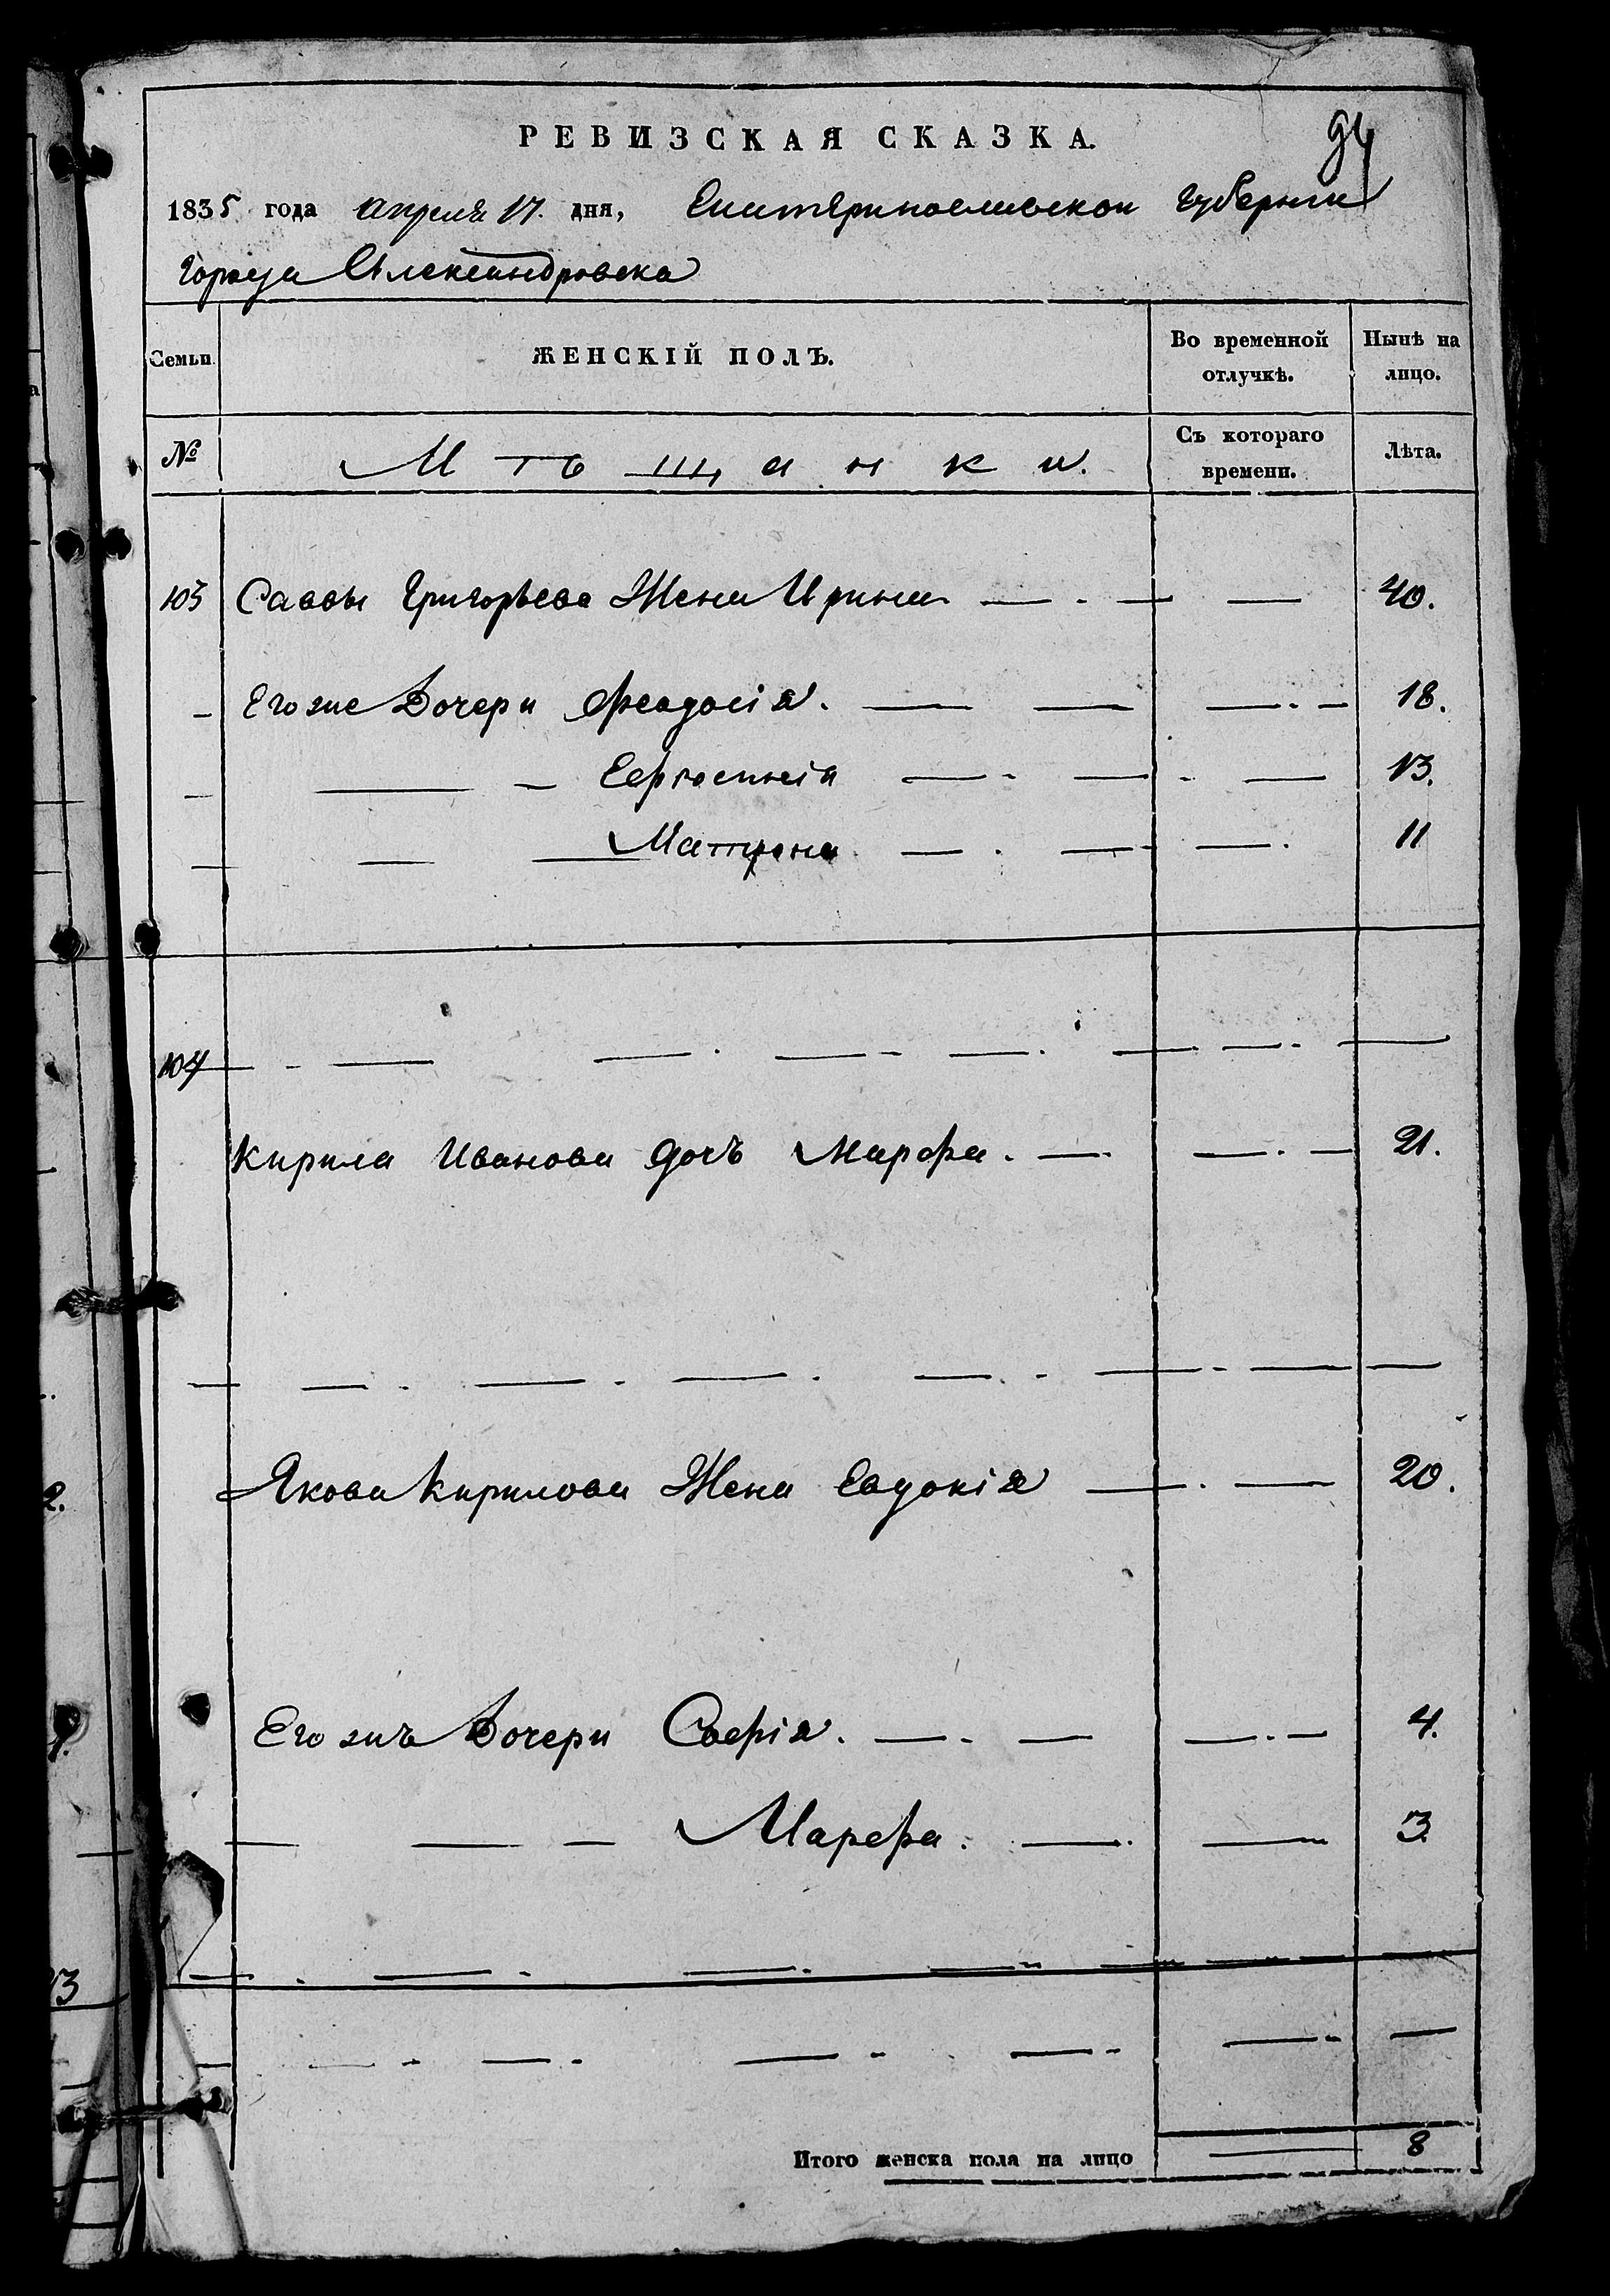 РЕВИЗСКАЯ СКАЗКА.
94
1835 года апреля 17. дня, Екатеринославской губернии
города Александровска
Семьи. ЖЕНСКІЙ ПОЛЪ. Во временной отлучкѣ. Нынѣ на лицо.
№ Мѣщанки. Съ котораго времени. Лѣта.
103 Саввы Григорьева Жена Ирина — 40.
Его же Дочери Феодосія. — 18.
Ефросинія — 13.
Матрона — 11
104
Кирила Иванова дочъ Марфа. — 21.
Якова Кирилова Жена Евдокія — 20.
Его жъ Дочери Софія. — 4.
Марфа. — 3.
Итого женска пола на лицо — 8